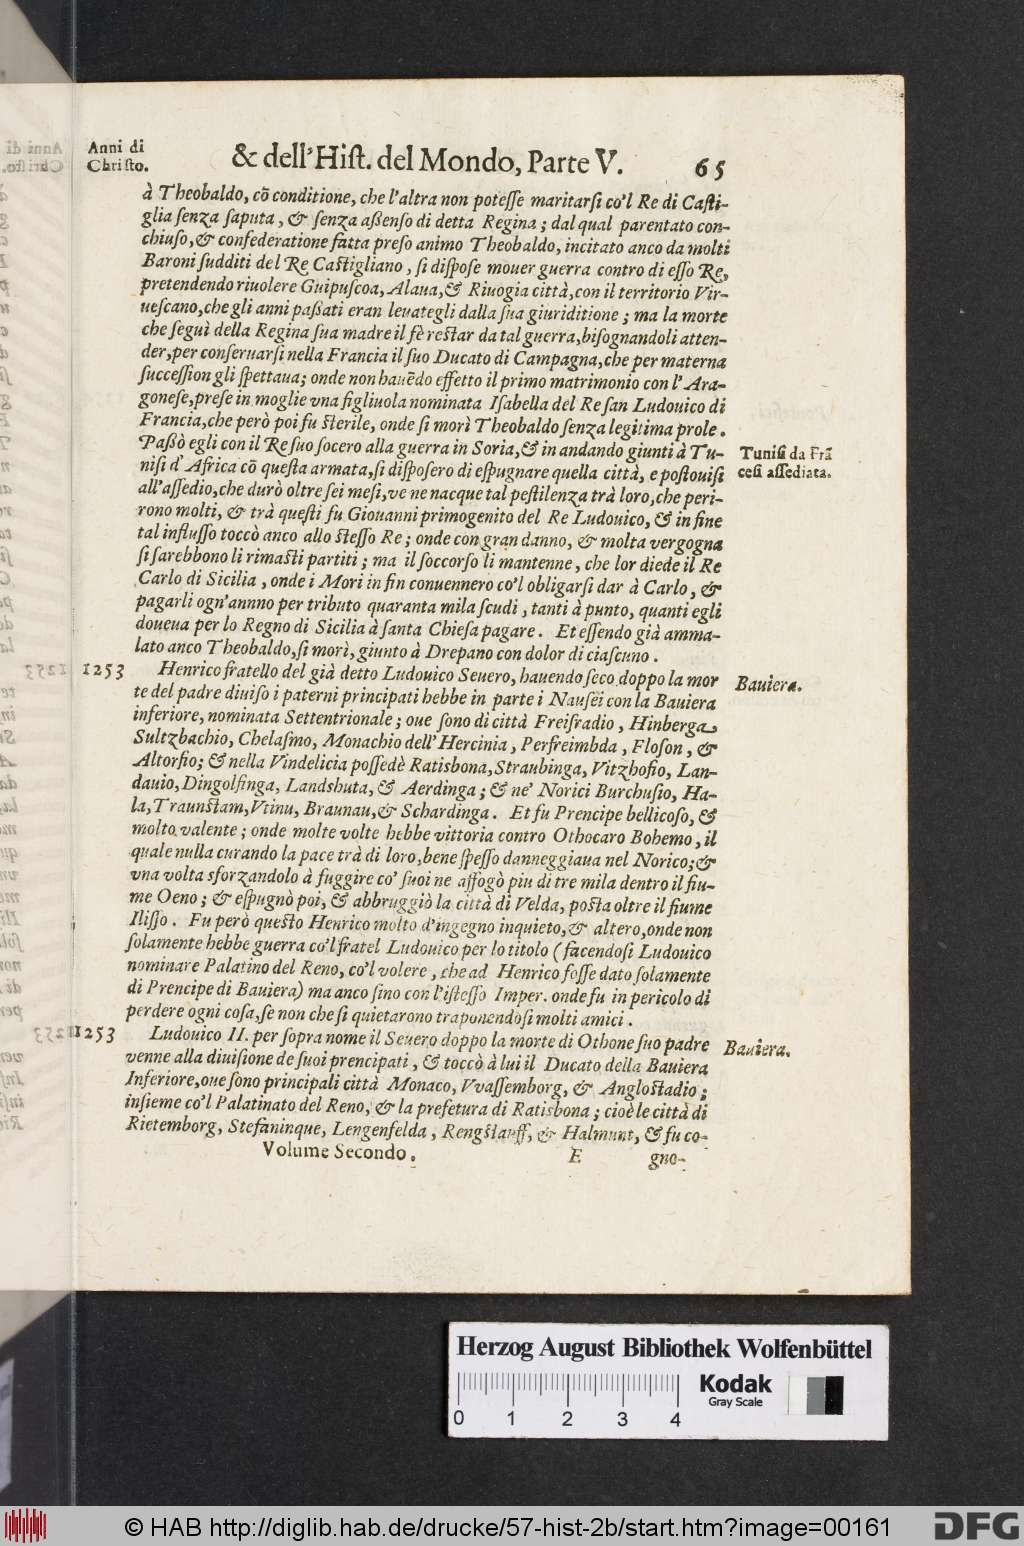 Anni di
Christo.
& dell'Hiſt. del Mondo, Parte V. 65
à Theobaldo, cõ conditione, che l'altra non poteſſe maritarſi co'l Re di Caſti-
glia ſenza ſaputa, & ſenza aßenſo di detta Regina; dal qual parentato con-
chiuſo, & confederatione fatta preſo animo Theobaldo, incitato anco da molti
Baroni ſudditi del Re Caſtigliano, ſi diſpoſe mouer guerra contro di eſſo Re,
pretendendo riuolere Guipuſcoa, Alaua, & Riuogia città, con il territorio Vir-
ueſcano, che gli anni paßati eran leuategli dalla ſua giuriditione; ma la morte
che ſeguì della Regina ſua madre il fè reſtar da tal guerra, biſognandoli atten-
der, per conſeruarſi nella Francia il ſuo Ducato di Campagna, che per materna
ſucceſſion gli ſpettaua; onde non hauẽdo effetto il primo matrimonio con l'Ara-
goneſe, preſe in moglie vna figliuola nominata Iſabella del Re ſan Ludouico di
Francia, che però poi fu ſterile, onde ſi morì Theobaldo ſenza legitima prole.
Paßò egli con il Re ſuo ſocero alla guerra in Soria, & in andando giunti à Tu-
niſi d'Africa cõ queſta armata, ſi diſpoſero di eſpugnare quella città, e poſtouiſi
all'aſſedio, che durò oltre ſei meſi, ve ne nacque tal peſtilenza trà loro, che peri-
rono molti, & trà queſti fu Giouanni primogenito del Re Ludouico, & in fine
tal influſſo toccò anco allo ſteſſo Re; onde con gran danno, & molta vergogna
ſi ſarebbono li rimaſti partiti; ma il ſoccorſo li mantenne, che lor diede il Re
Carlo di Sicilia, onde i Mori in fin conuennero co'l obligarſi dar à Carlo, &
pagarli ogn'annno per tributo quaranta mila ſcudi, tanti à punto, quanti egli
doueua per lo Regno di Sicilia à ſanta Chieſa pagare. Et eſſendo già amma-
lato anco Theobaldo, ſi morì, giunto à Drepano con dolor di ciaſcuno.
Tuniſi da Frã
ceſi aſſediata.
1253 Henrico fratello del già detto Ludouico Seuero, hauendo ſeco doppo la mor
te del padre diuiſo i paterni principati hebbe in parte i Nauſei con la Bauiera
inferiore, nominata Settentrionale; oue ſono di città Freiſradio, Hinberga,
Sultzbachio, Chelaſmo, Monachio dell'Hercinia, Perfreimbda, Floſon, &
Altorfio; & nella Vindelicia poſſedè Ratisbona, Straubinga, Vitzhofio, Lan-
dauio, Dingolfinga, Landshuta, & Aerdinga; & ne' Norici Burchuſio, Ha-
la, Traunſtam, Vtinu, Braunau, & Schardinga. Et fu Prencipe bellicoſo, &
molto valente; onde molte volte hebbe vittoria contro Othocaro Bohemo, il
quale nulla curando la pace trà di loro, bene ſpeſſo danneggiaua nel Norico; &
vna volta sforzandolo à fuggire co' ſuoi ne affogò piu di tre mila dentro il fiu-
me Oeno; & eſpugnò poi, & abbruggiò la città di Velda, poſta oltre il fiume
Iliſſo. Fu però queſto Henrico molto d'ingegno inquieto, & altero, onde non
ſolamente hebbe guerra co'l fratel Ludouico per lo titolo (facendoſi Ludouico
nominare Palatino del Reno, co'l volere, che ad Henrico foſſe dato ſolamente
di Prencipe di Bauiera) ma anco ſino con l'iſteſſo Imper. onde fu in pericolo di
perdere ogni coſa, ſe non che ſi quietarono traponendoſi molti amici.
Bauiera.
1253 Ludouico II. per ſopra nome il Seuero doppo la morte di Othone ſuo padre
venne alla diuiſione de ſuoi prencipati, & toccò à lui il Ducato della Bauiera
Inferiore, oue ſono principali città Monaco, Vvaſſemborg, & Angloſtadio;
inſieme co'l Palatinato del Reno, & la prefetura di Ratisbona; cioè le città di
Rietemborg, Stefaninque, Lengenfelda, Rengſtauff, & Halmunt, & fu co-
Bauiera.
Volume Secondo. E gno-
Herzog August Bibliothek Wolfenbüttel
Kodak
Gray Scale
0 1 2 3 4
© HAB http://diglib.hab.de/drucke/57-hist-2b/start.htm?image=00161
DFG